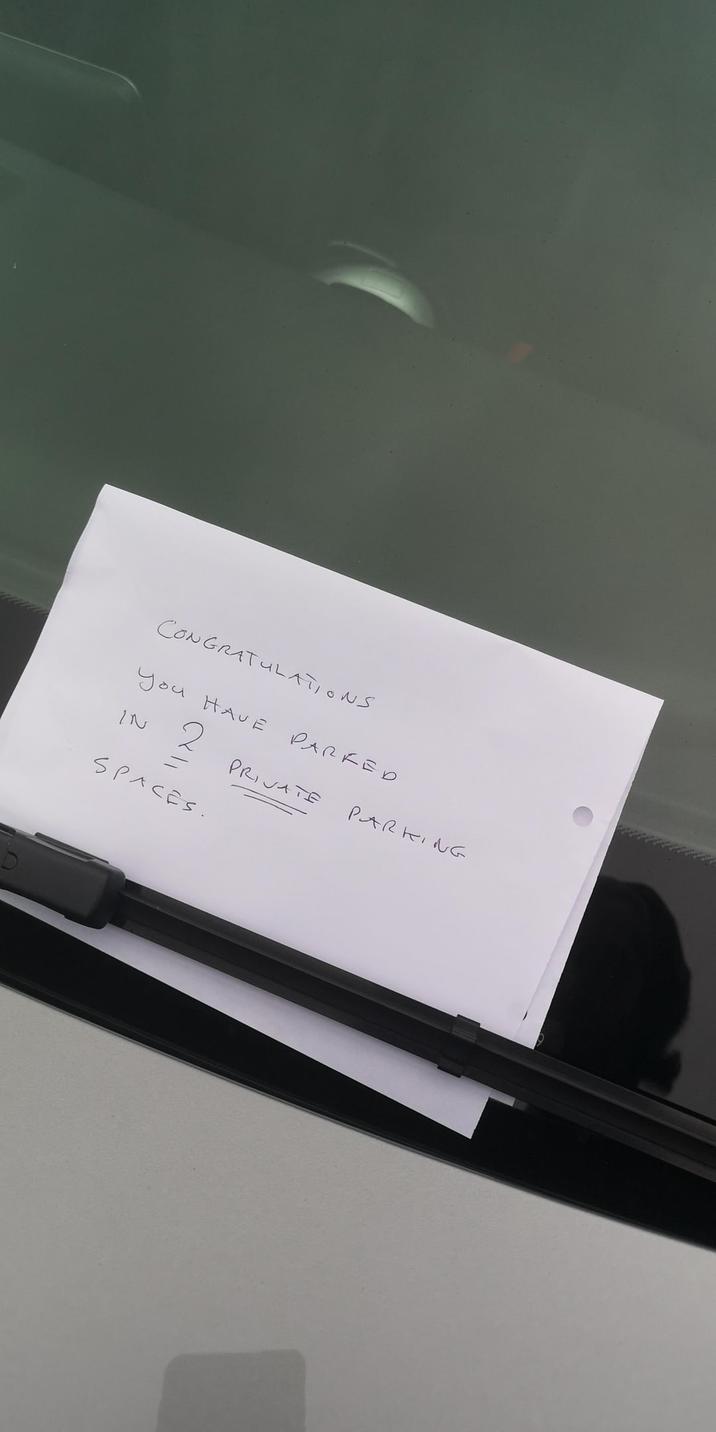 CONGRATULATIONS
YOU HAVE PARKED
IN 2 PRIVATE PARKING
SPACES.